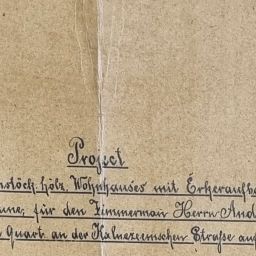 Project
stöck. hölz. Wohnhauses mit Erkeraufb
für den Zimmerman Herrn And
Quart. an der Kalnezeemschen Straße auf